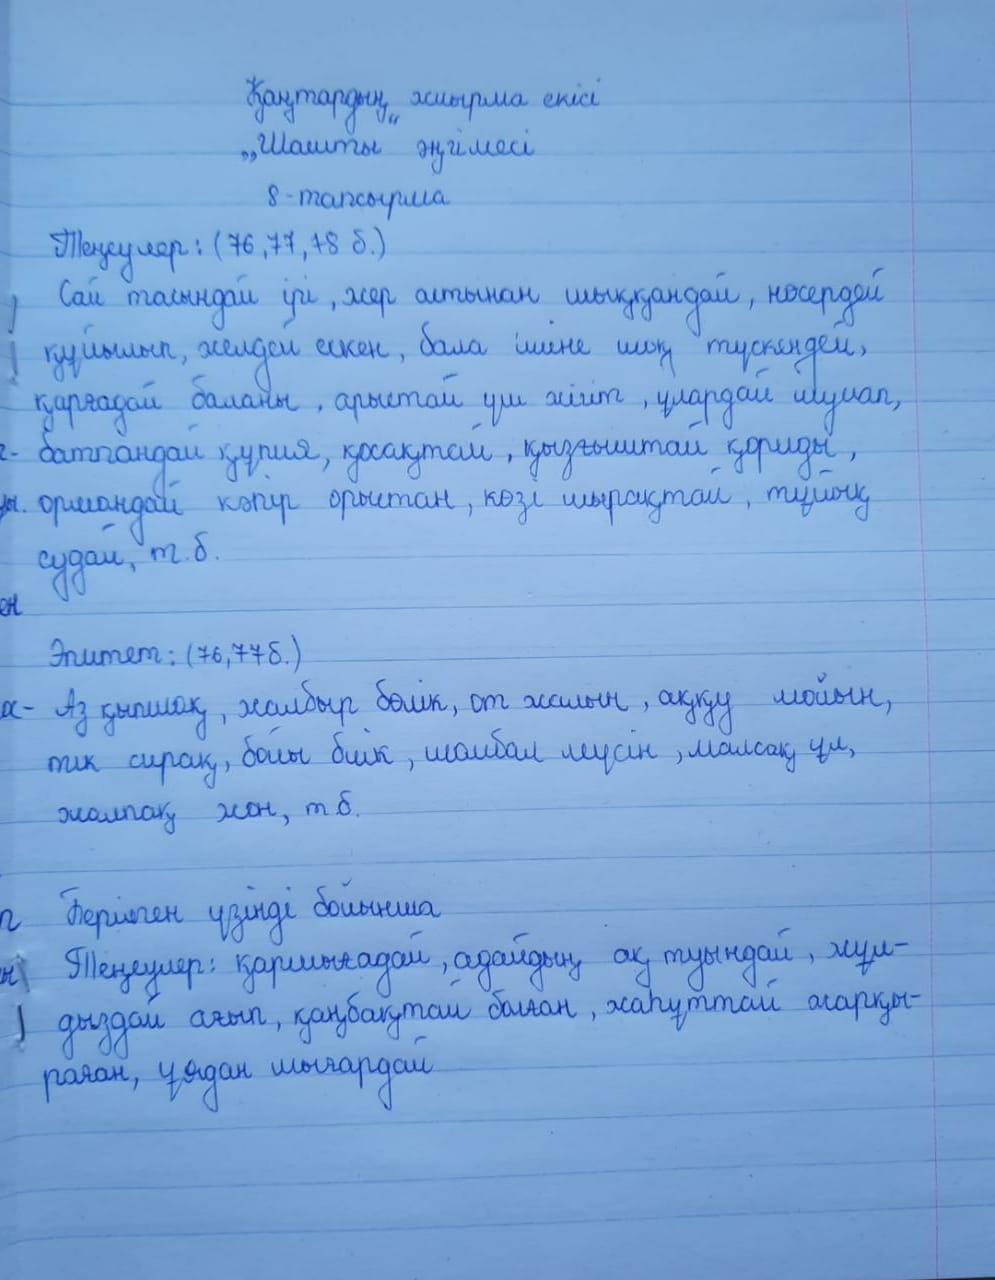 Қаңтардың жиырма екісі
„Шашты“ әңгімесі
8-тапсырма
Теңеулер: (76,77,78 б.)
Сай тасындай ірі, жер астынан шыққандай, нөсердей
құйылып, желдей ескен, бала ішіне шоқ түскендей,
қарғадай баланы, арыстай үш жігіт, ұлардай шулап,
батпандай құпия, қосақтай, қызғыштай қориды,
ормандай көпір орыстан, көзі шырақтай, тұйық
судай, т.б.
Эпитет: (76,77б.)
Аз қыпшақ, жалбыр бөлік, от жалын, аққу мойын,
тік сирақ, бойы биік, шомбал мүсін, малсақ ұл,
жалпақ жон, т.б.
Берілген үзінді бойынша
Теңеулер: қаршығадай, адайдың ақ туындай, жұл-
дыздай ағып, қаңбақтай болған, жаһұттай жарқы-
раған, ұядан шығардай